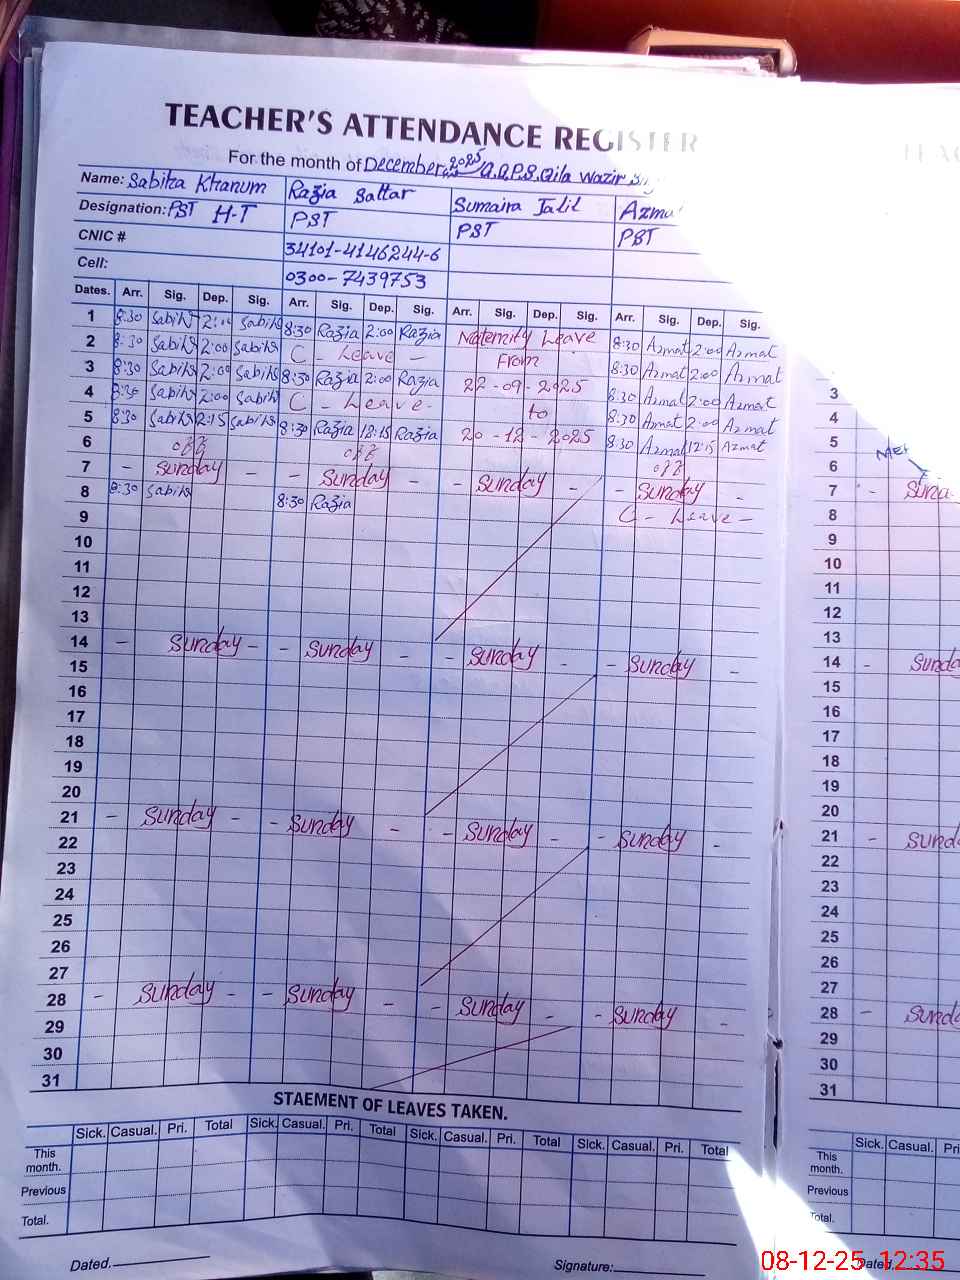 TEACHER'S ATTENDANCE REGISTER
For the month of December 2025 G.G.P.S. Qila Wazir
Name: Sabiha Khanum Razia Sattar Sumaira Jalil Azmat
Designation: PST H-T PST PST PST
CNIC # 34101-4146244-6
Cell: 0300-7439753
Dates. Arr. Sig. Dep. Sig. Arr. Sig. Dep. Sig. Arr. Sig. Dep. Sig. Arr. Sig. Dep. Sig.
1 8:30 Sabiha 2:00 Sabiha 8:30 Razia 2:00 Razia Maternity Leave 8:30 Azmat 2:00 Azmat
2 8:30 Sabiha 2:00 Sabiha C - Leave - From 8:30 Azmat 2:00 Azmat
3 8:30 Sabiha 2:00 Sabiha 8:30 Razia 2:00 Razia 22-09-2025 8:30 Azmat 2:00 Azmat 3
4 8:30 Sabiha 2:00 Sabiha C - Leave - to 8:30 Azmat 2:00 Azmat 4
5 8:30 Sabiha 12:15 Sabiha 8:30 Razia 12:15 Razia 20-12-2025 8:30 Azmat 12:15 Azmat 5
6 off off off 6
7 - Sunday - - Sunday - - Sunday - - Sunday - 7 -
8 8:30 Sabiha 8:30 Razia C - Leave - 8
9 9
10 10
11 11
12 12
13 13
14 - Sunday - - Sunday - - Sunday - - Sunday - 14 - Sunda
15 15
16 16
17 17
18 18
19 19
20 20
21 - Sunday - - Sunday - - Sunday - - Sunday - 21 - Sund
22 22
23 23
24 24
25 25
26 26
27 27
28 - Sunday - - Sunday - - Sunday - - Sunday - 28 - Sund
29 29
30 30
31 31
STAEMENT OF LEAVES TAKEN.
Sick. Casual. Pri. Total Sick. Casual. Pri. Total Sick. Casual. Pri. Total Sick. Casual. Pri. Total Sick. Casual. Pri
This month. This month.
Previous Previous
Total. Total.
Dated. Signature: Dated.
08-12-25 12:35